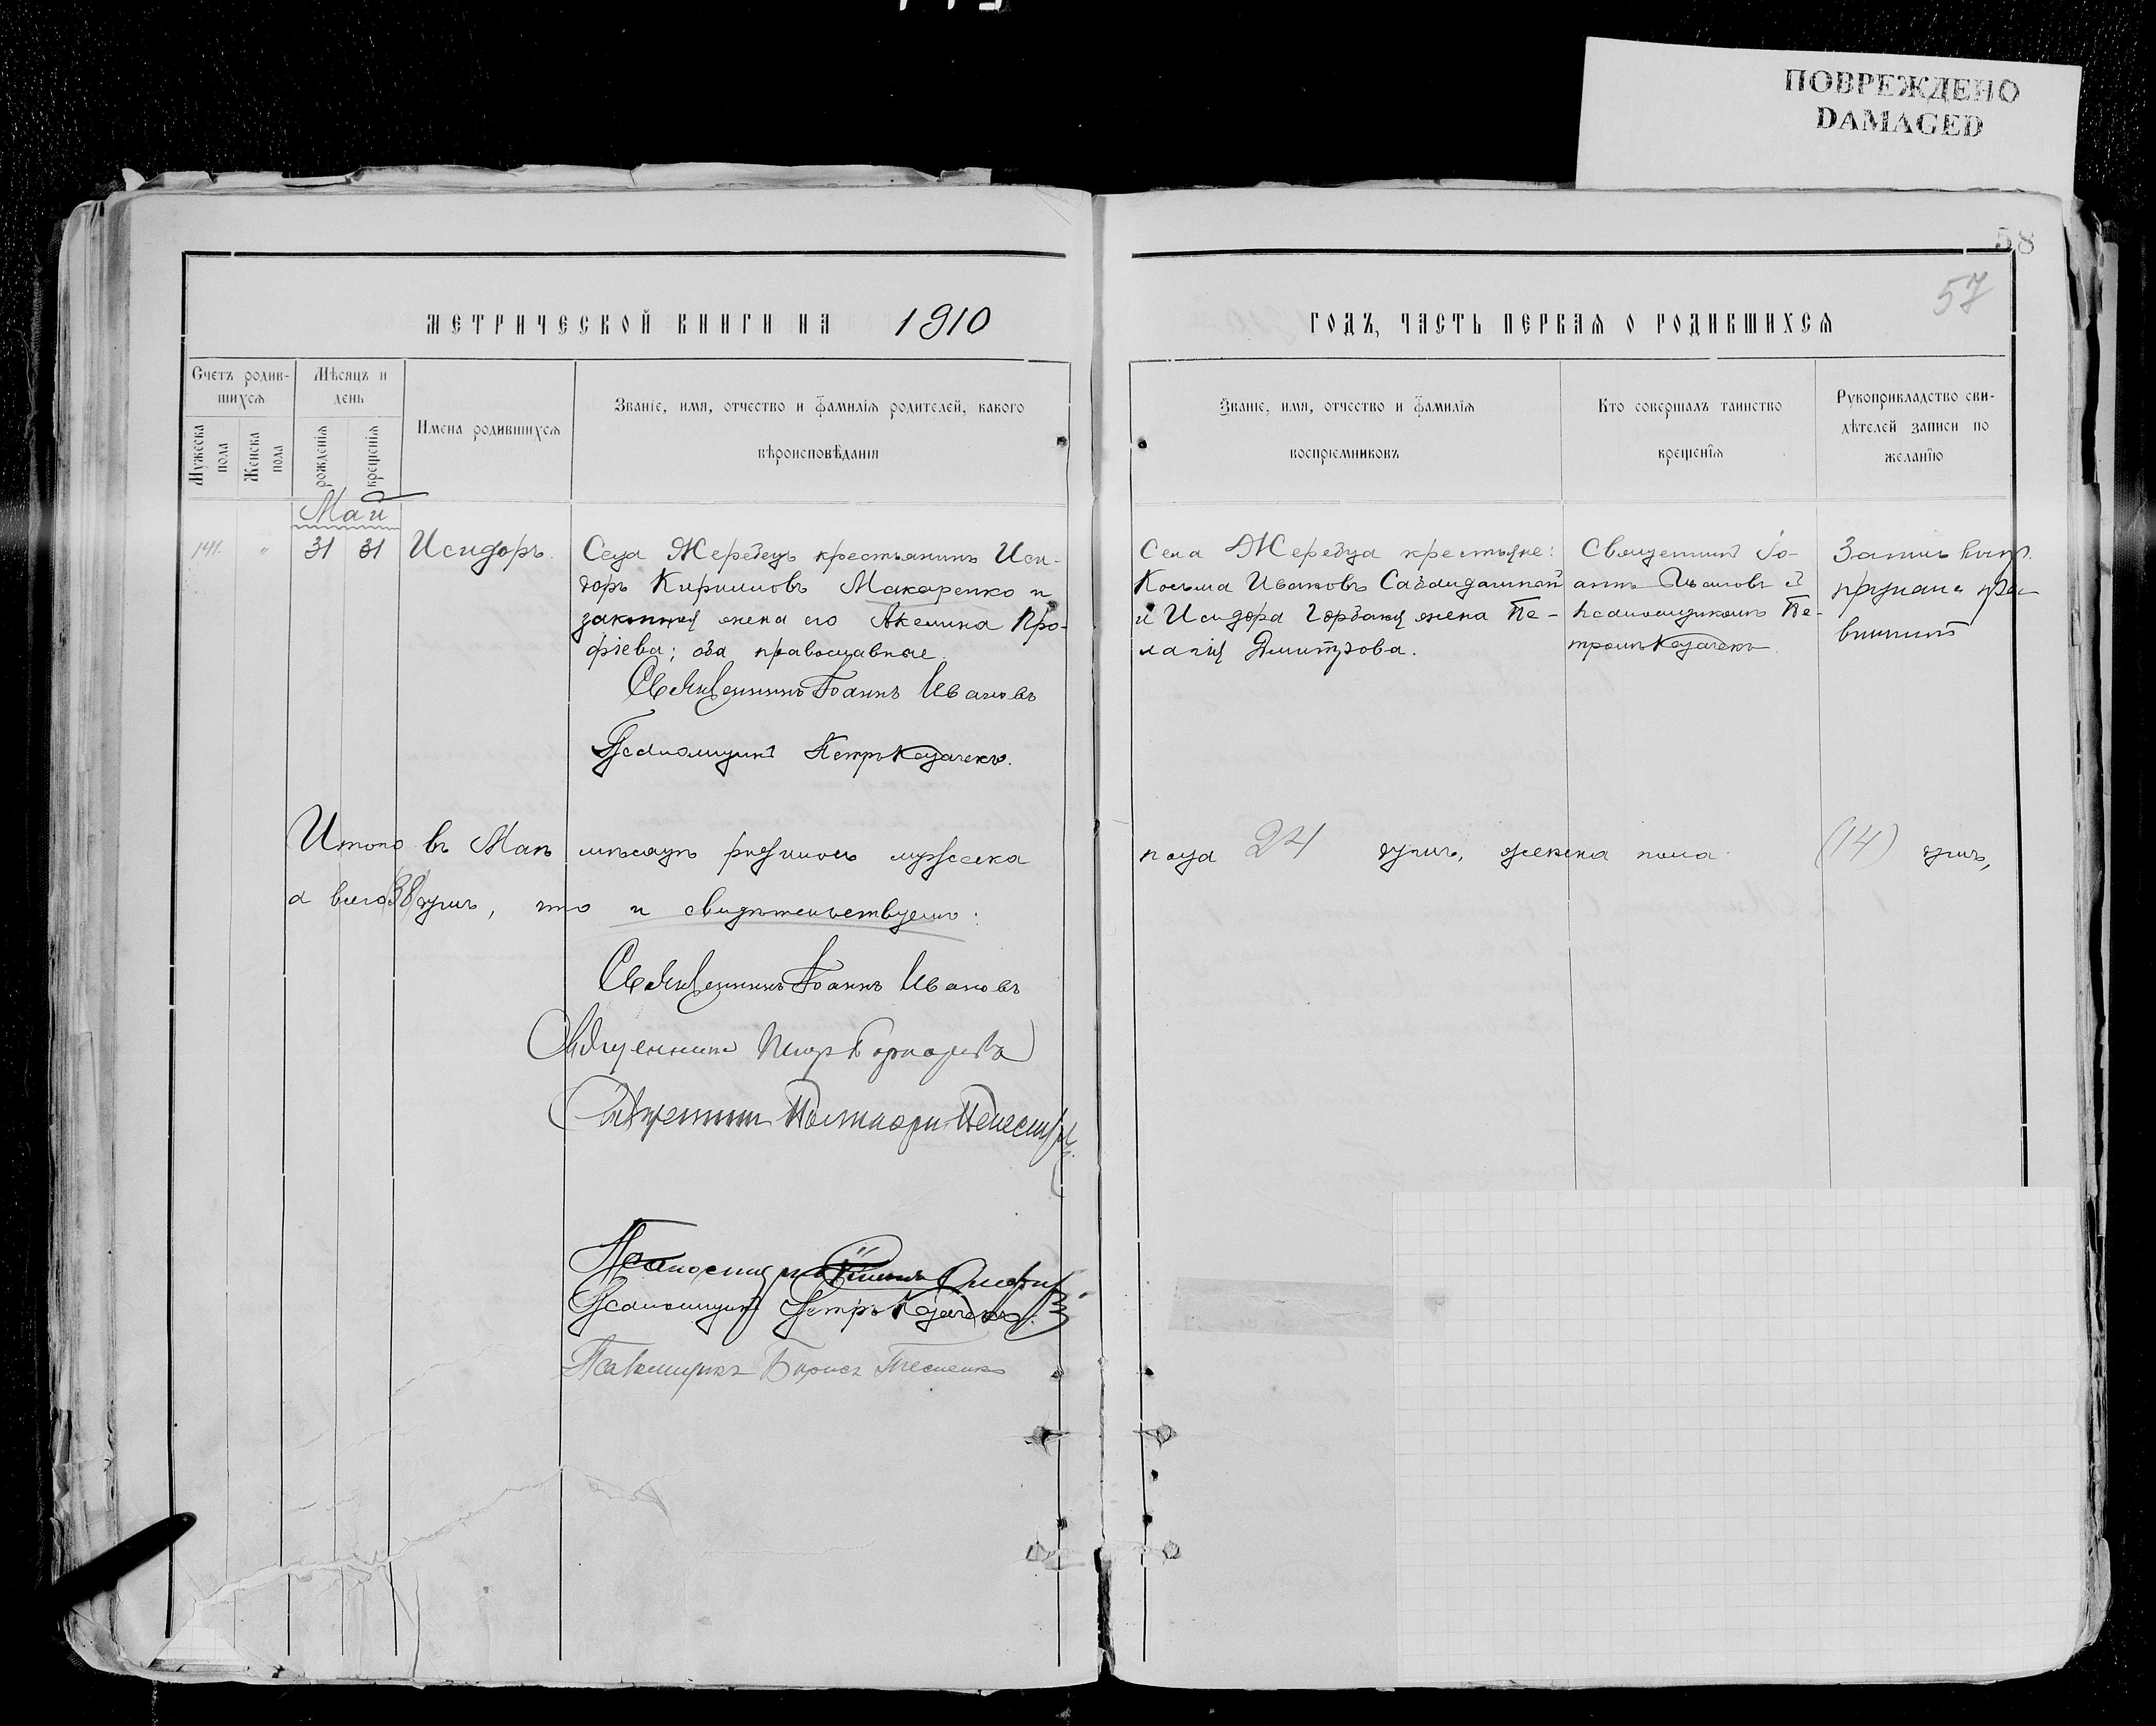 ПОВРЕЖДЕНО
DAMAGED
58
57
МЕТРИЧЕСКОЙ КНИГИ НА 1910
ГОДЪ, ЧАСТЬ ПЕРВАЯ О РОДИВШИХСЯ
Счетъ родив-
шихся
Мужеска пола
Женска пола
Мѣсяцъ и
день
рожденія
крещенія
Имена родившихся
Званіе, имя, отчество и фамилія родителей, какого
вѣроисповѣданія
Званіе, имя, отчество и фамилія
воспріемниковъ
Кто совершалъ таинство
крещенія
Рукоприкладство сви-
дѣтелей записи по
желанію
Май
141. " 31 31 Исидоръ.
Села Жеребецъ крестьянинъ Иси-
доръ Кирилловъ Макаренко и
законная жена его Акелина Про-
фіева; оба православные.
Священникъ Іоаннъ Ивановъ
Псаломщикъ Петръ Козачекъ.
Села Жеребца крестьяне:
Косьма Ивановъ
и Исидора Горбаня жена Пе-
лагія Димитрова.
Священникъ Іо-
аннъ Ивановъ съ
псаломщикомъ Пе-
тромъ Козачекъ
Итого въ Маѣ мѣсяцѣ родилось мужеска
пола 24 душъ, женска пола (14) душъ,
а всего 38 душъ, что и свидѣтельствуемъ:
Священникъ Іоаннъ Ивановъ
Священникъ
Священникъ
Псаломщикъ
Псаломщикъ Петръ Козачекъ.
Псаломщикъ Борисъ